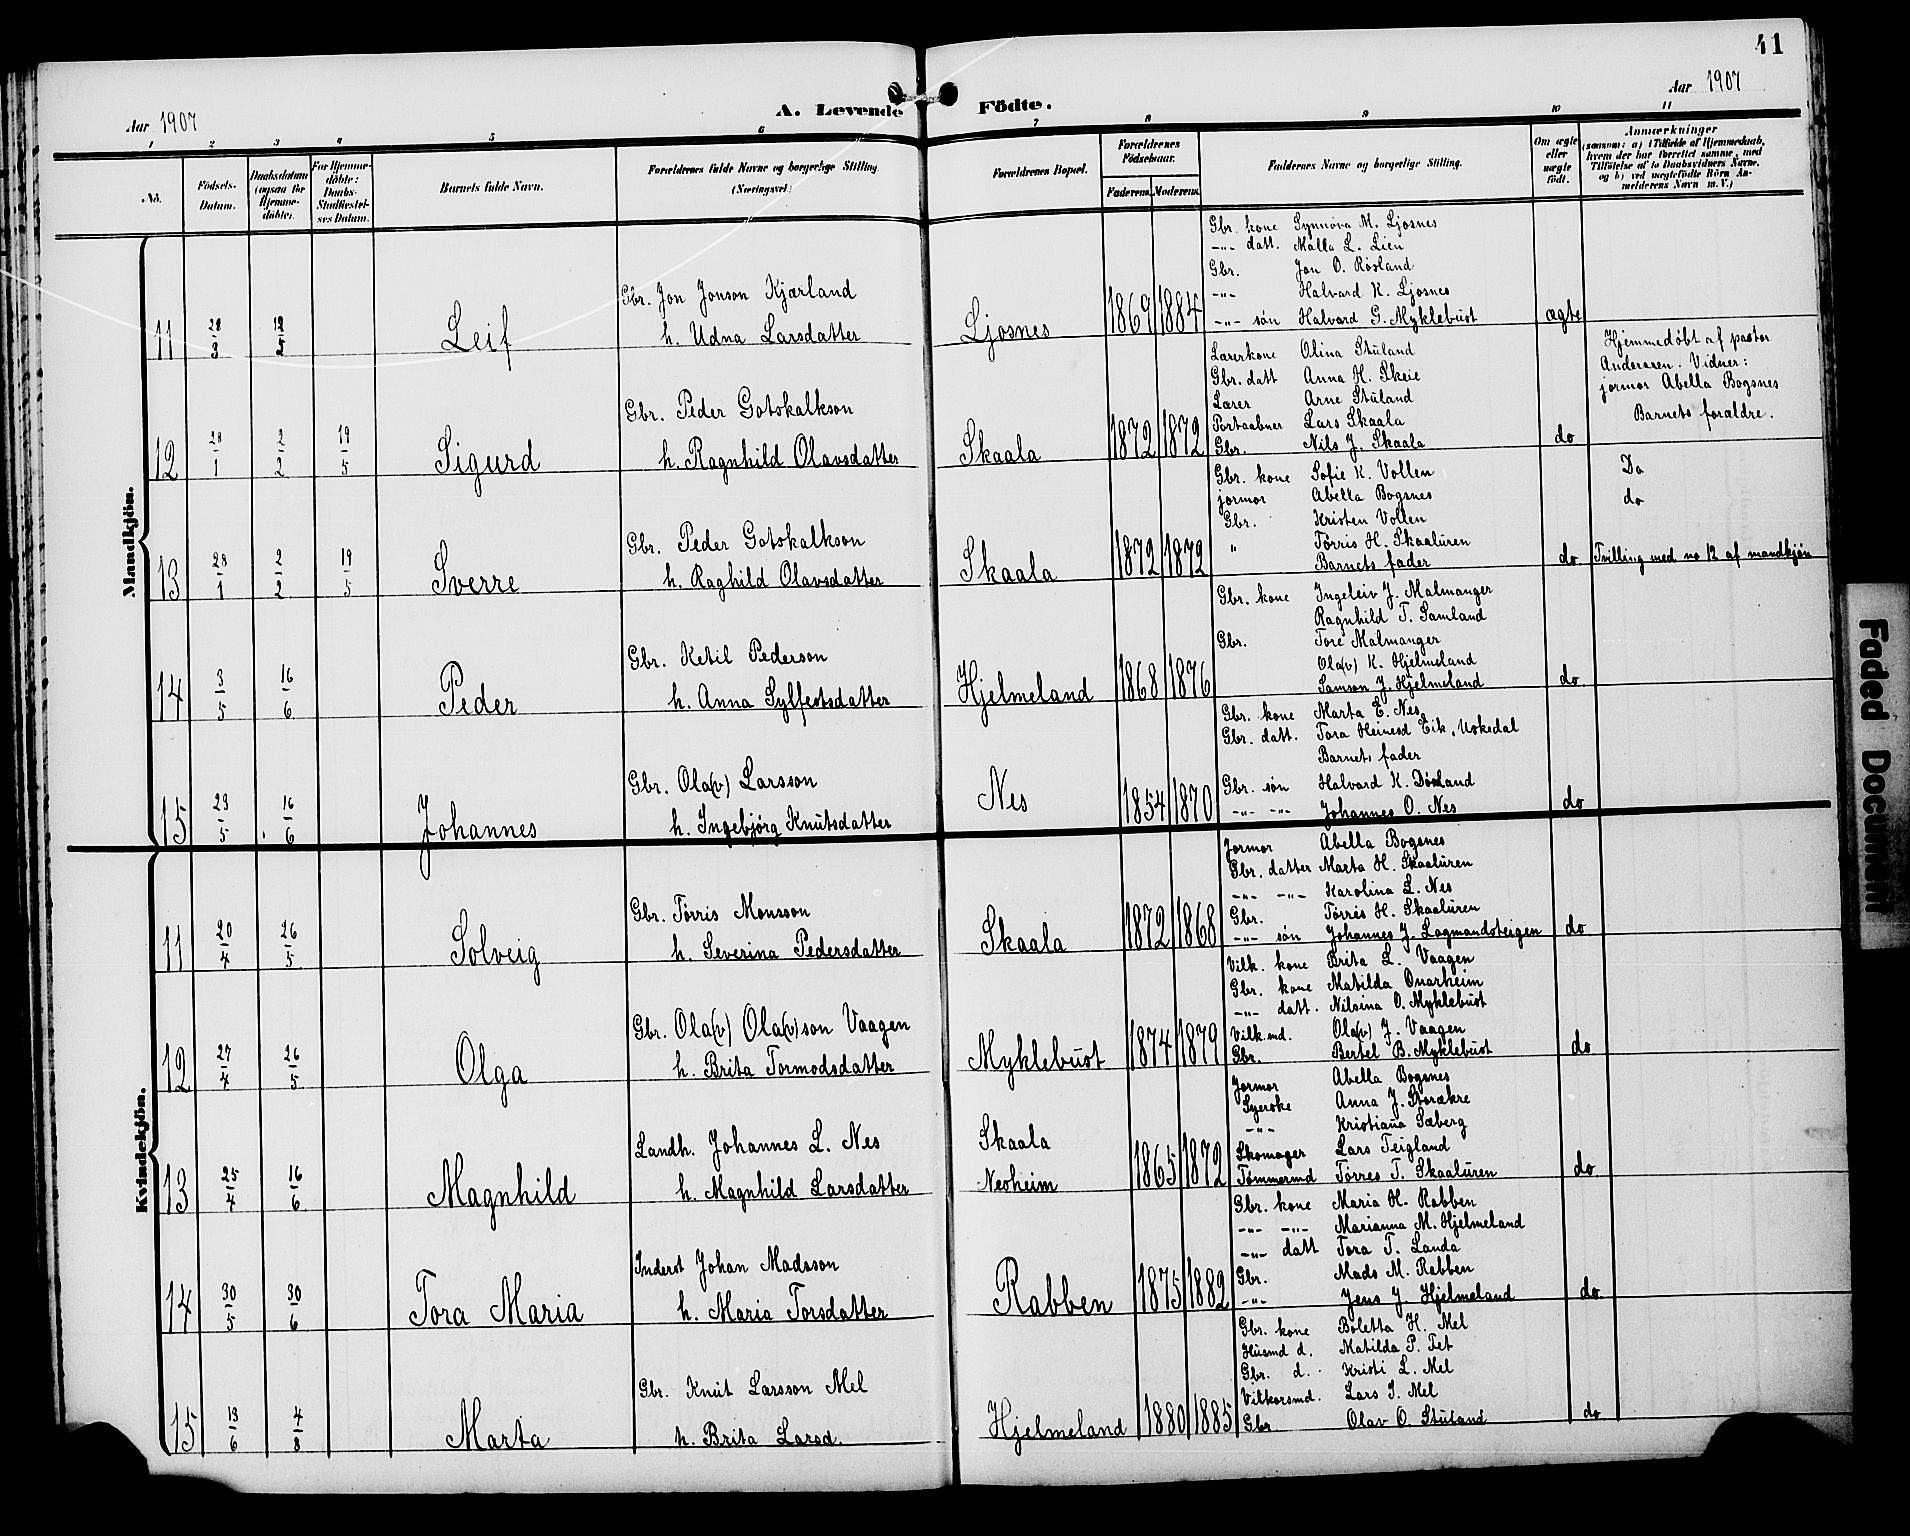 41
Aar 1907
A. Levende Födte.
Aar 1907
1 2 3 4 5 6 7 8 9 10 11
No.
Födsels-Datum.
Daabsdatum (ogsaa for Hjemmedöbte).
For Hjemmedöbte: Daabs-Stadfæstelses Datum.
Barnets fulde Navn.
Forældrenes fulde Navne og borgerlige Stilling. (Næringsvei.)
Forældrenes Bopæl.
Forældrenes Födselsaar.
Faderens. Moderens.
Faddernes Navne og borgerlige Stilling.
Om ægte eller uægte födt.
Anmærkninger
(saasom: a) i Tilfælde af Hjemmedaab, hvem der har forrettet samme, med Tilföielse af to Daabsvidners Navne, og b) ved uægtefödte Börn Anmelderens Navn m. V.)
Mandkjön.
Gbr. kone Synnøva M. Ljosnes
-"- datt. Malla L. Lien
Gbr. Jon O. Røsland
-"- Halvard K. Ljosnes
-"- søn Halvard G. Myklebust
11 28/3 12/5 Leif
Gbr. Jon Jonson Kjærland
h. Udna Larsdatter
Ljosnes 1869 1884 ægte
Lærerkone Olina Stuland
Gbr. datt Anna H. Skeie
Lærer Arne Stuland
Postaabner Lars Skaala
Gbr. Nils J. Skaala
12 28/1 2/2 19/5 Sigurd
Gbr. Peder Gotskalkson
h. Ragnhild Olavsdatter
Skaala 1872 1872 do
Hjemmedøbt af pastor
Andersen. Vidner:
jormor Abella Bogsnes
Barnets forældre.
Gbr. kone Sofie K. Vollen
jormor Abella Bogsnes
Gbr. Kristen Vollen
" Tørris H. Skaaluren
Barnets fader
13 28/1 2/2 19/5 Sverre
Gbr. Peder Gotskalkson
h. Raghild Olavsdatter
Skaala 1872 1872 do
Do
do
Tvilling med no 12 af mandkjøn
Gbr. kone Ingeleiv J. Malmanger
Ragnhild T. Samland
Gbr. Tore Malmanger
Ola(v) K. Hjelmeland
Samson J. Hjelmeland
14 3/5 16/6 Peder
Gbr. Ketil Pederson
h. Anna Sylfestsdatter
Hjelmeland 1868 1876 do
Gbr. kone Marta E. Nes
Gbr. datt. Tora Heinesd Eik, Uskedal
Barnets fader
Gbr. søn Halvard K. Døsland
-"- -"- Johannes O. Nes
15 23/5 16/6 Johannes
Gbr. Ola(v) Larsson
h. Ingebjørg Knutsdatter
Nes 1854 1870 do
Kvindekjön.
Jormor Abella Bogsnes
Gbr. datter Marta H. Skaaluren
-"- -"- Karolina L. Nes
Gbr. Tørris H. Skaaluren
-"- søn Johannes J. Lagmandsteigen
11 20/4 26/5 Solveig
Gbr. Tørris Monsson
h. Severina Pedersdatter
Skaala 1872 1868 do
Vilk. kone Brita L. Vaagen
Gbr. kone Matilda Onarheim
-"- datt. Nilsina O. Myklebust
Vilk.md. Ola(v) J. Vaagen
Gbr. Bertel B. Myklebust
12 27/4 26/5 Olga
Gbr. Ola(v) Ola(v)son Vaagen
h. Brita Tormodsdatter
Myklebust 1874 1879 do
Jormor Abella Bogsnes
Syerske Anna J. Storækre
-"- Kristiana Sæberg
Skomager Lars Teigland
Tømmermd Tørres T. Skaaluren
13 25/4 16/6 Magnhild
Landh. Johannes L. Nes
h. Magnhild Larsdatter
Skaala
Nesheim 1865 1872 do
Gbr. kone Maria H. Rabben
-"- -"- Marianna M. Hjelmeland
-"- datt Tora T. Landa
Gbr. Mads M. Rabben
-"- Jens J. Hjelmeland
14 30/5 30/6 Tora Maria
Inderst Johan Madsson
h. Maria Torsdatter
Rabben 1875 1882 do
Gbr. kone Boletta H. Mel
Husmd d. Matilda P. Tet
Gbr. d. Kristi L. Mel
Vilkorsmd. Lars J. Mel
Gbr. Olav O. Stuland
15 13/6 4/8 Marta
Gbr. Knut Larsson Mel
h. Brita Larsd.
Hjelmeland 1880 1885 do
Faded Document